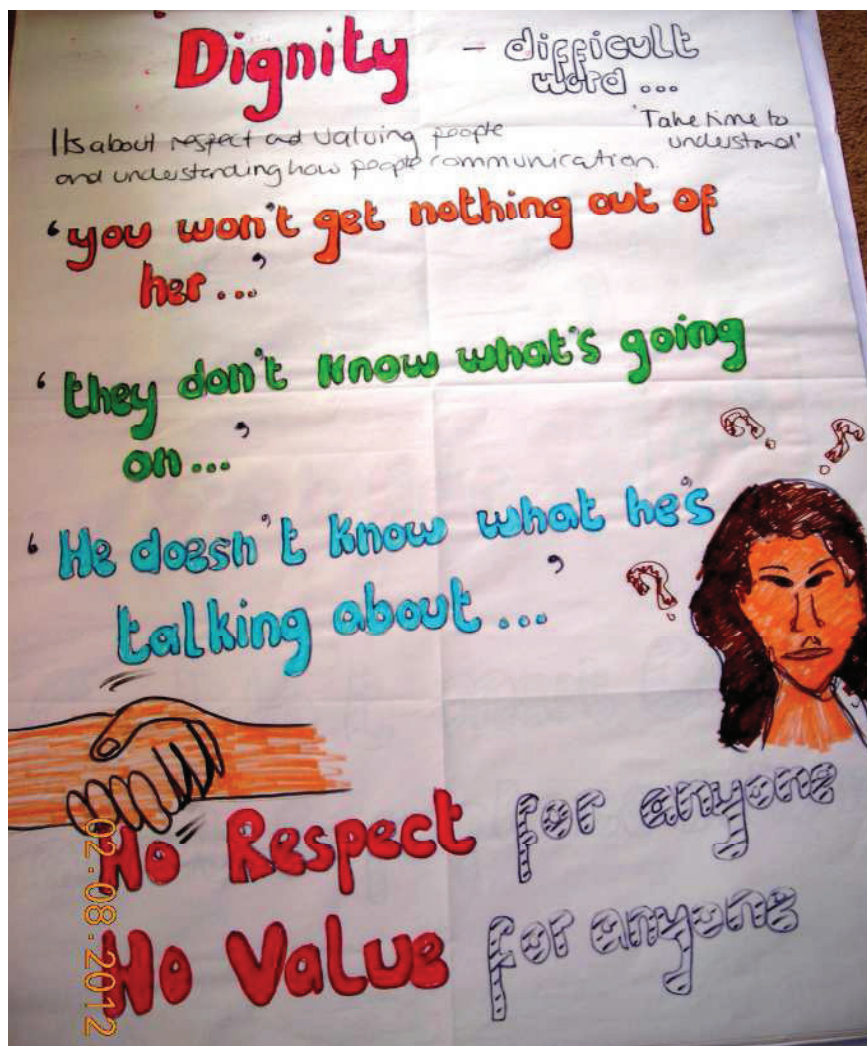 Dignity - difficult
word...
Its about respect and valuing people
and understanding how people communication.
'Take time to
understand'
'you won't get nothing out of
her...'
'they don't know what's going
on...'
'He doesn't know what he's
talking about...'
? ?
?
No Respect for anyone
No Value for anyone
02-08-2012